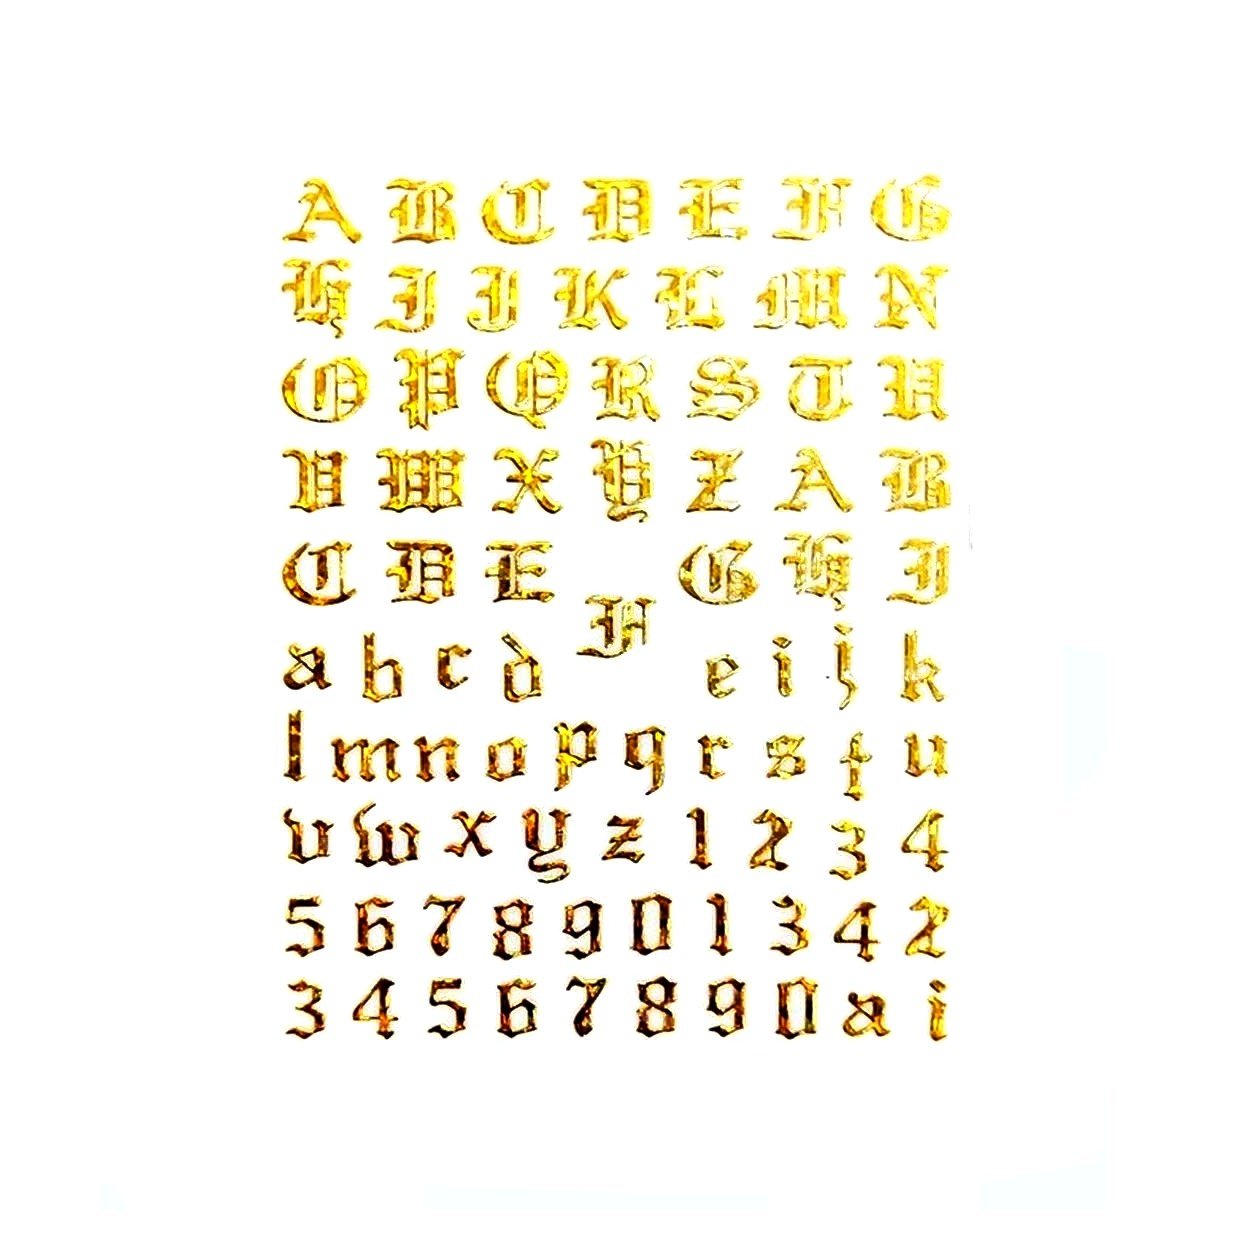 A B C D E F G
H I J K L M N
O P Q R S T U
V W X Y Z A B
C D E F G H I
a b c d e i j k
l m n o p q r s t u
v w x y z 1 2 3 4
5 6 7 8 9 0 1 3 4 2
3 4 5 6 7 8 9 0 a i